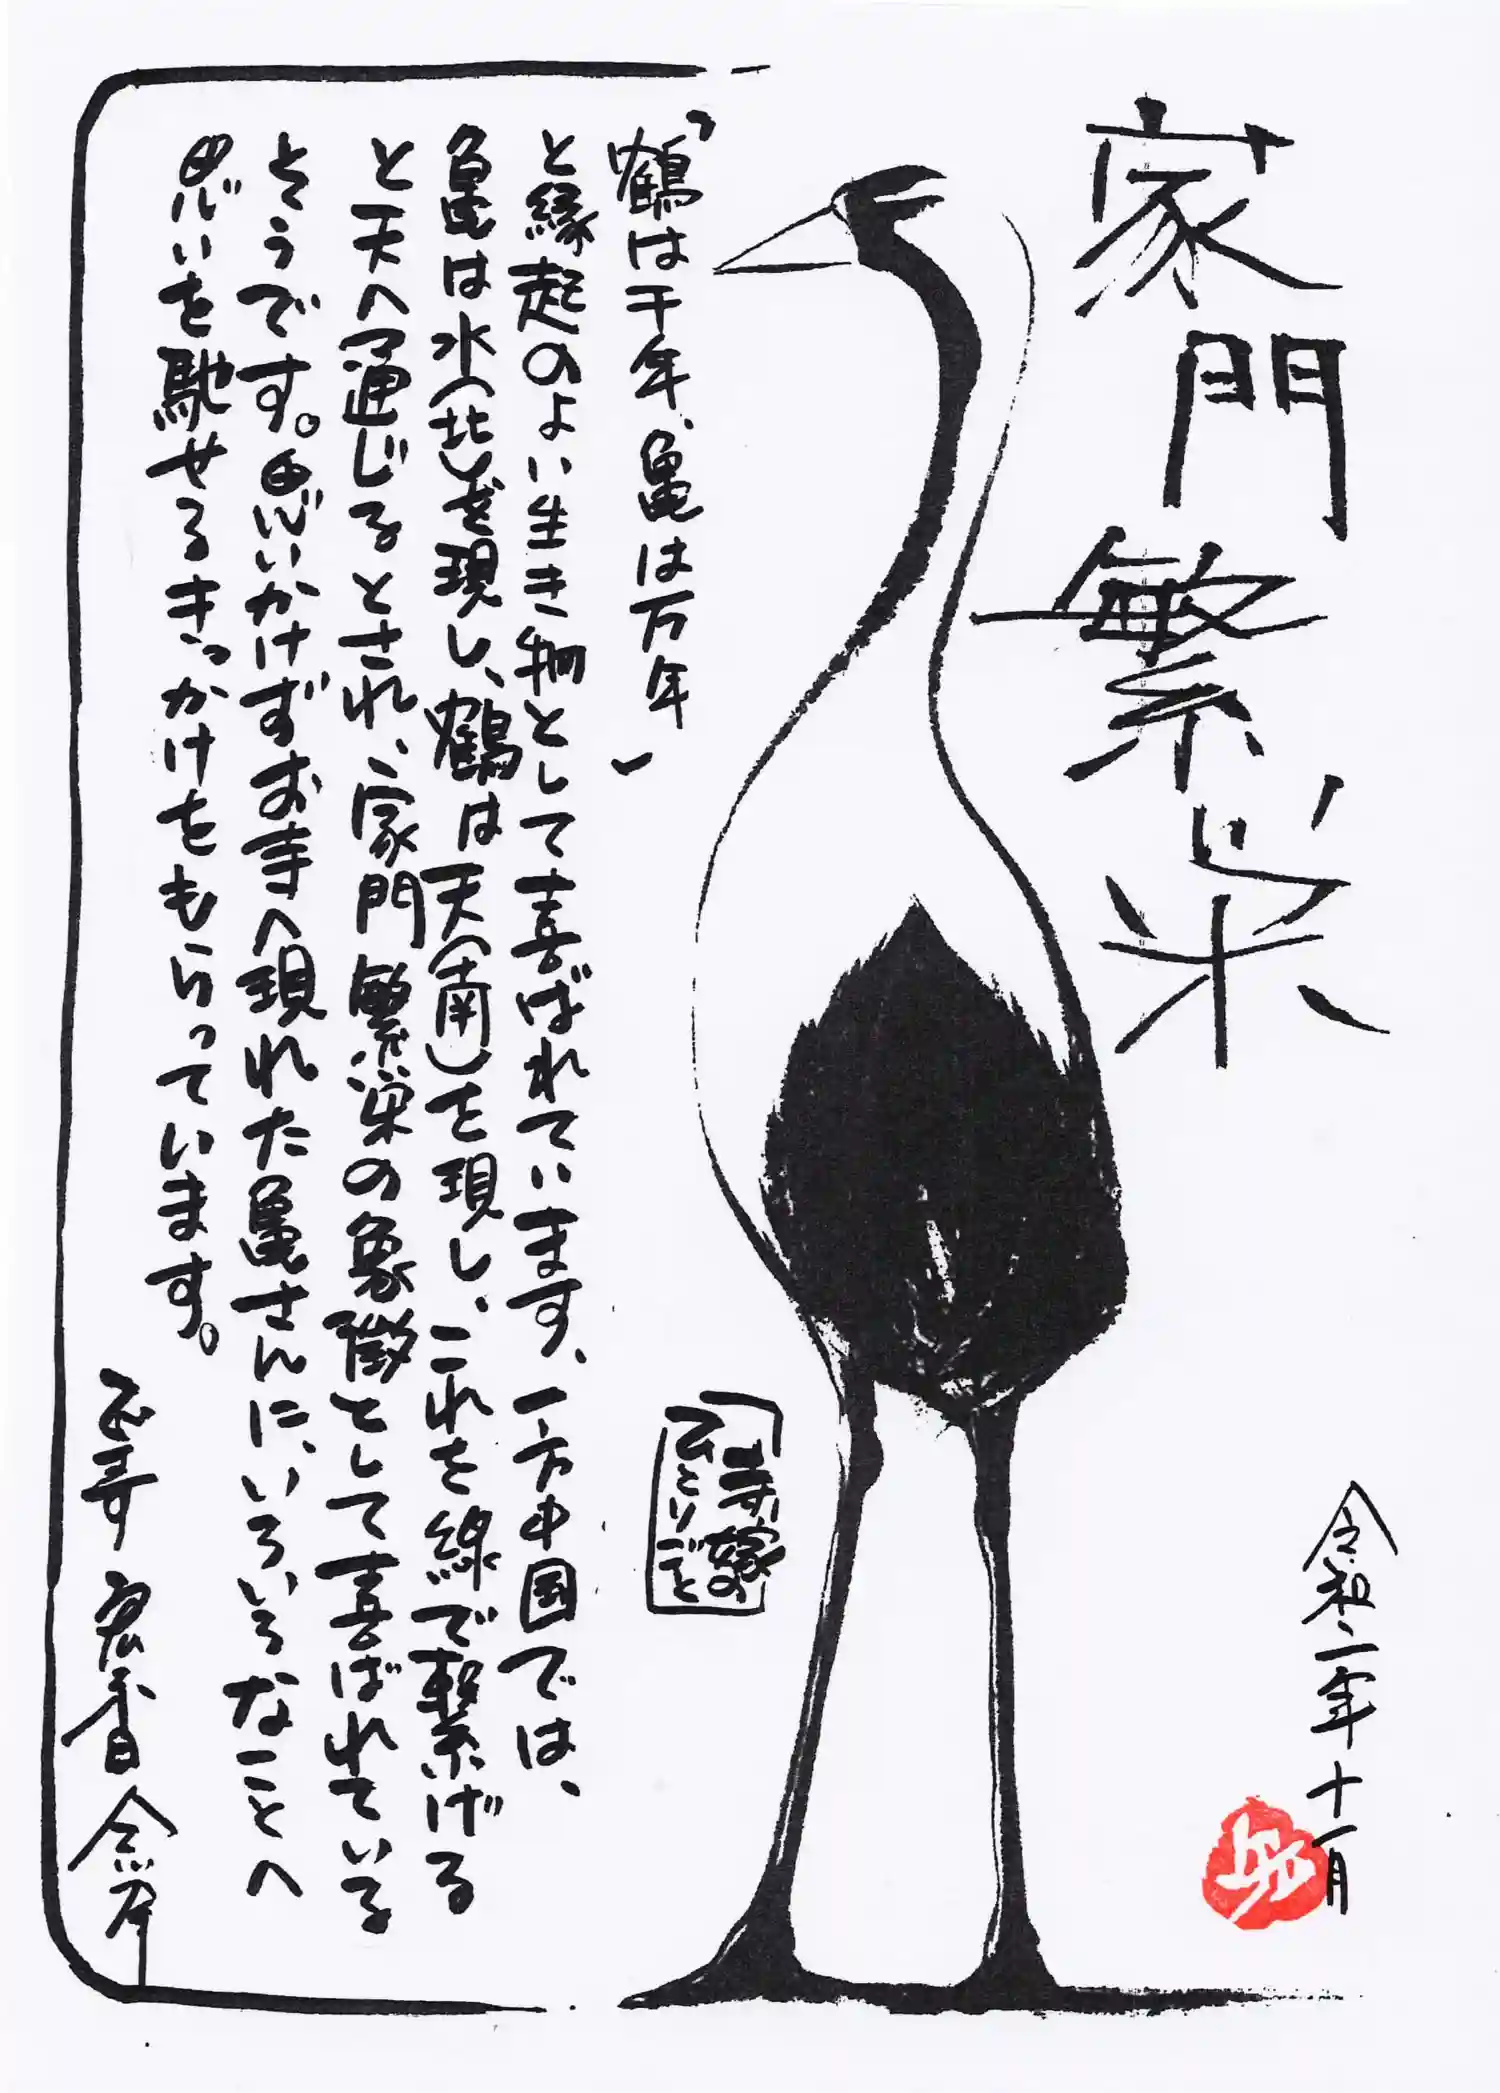 家門繁栄
令和二年十一月
「鶴は千年、亀は万年」
と縁起のよい生き物として喜ばれています、一方中国では、
亀は水(北)を現し、鶴は天(南)を現し、これを線で繋げる
と天へ通じるとされ、家門繁栄の象徴として喜ばれている
そうです。思いかけずお寺へ現れた亀さんに、いろいろなことへ
思いを馳せるきっかけをもらっています。
寺嫁の
ひとりごと